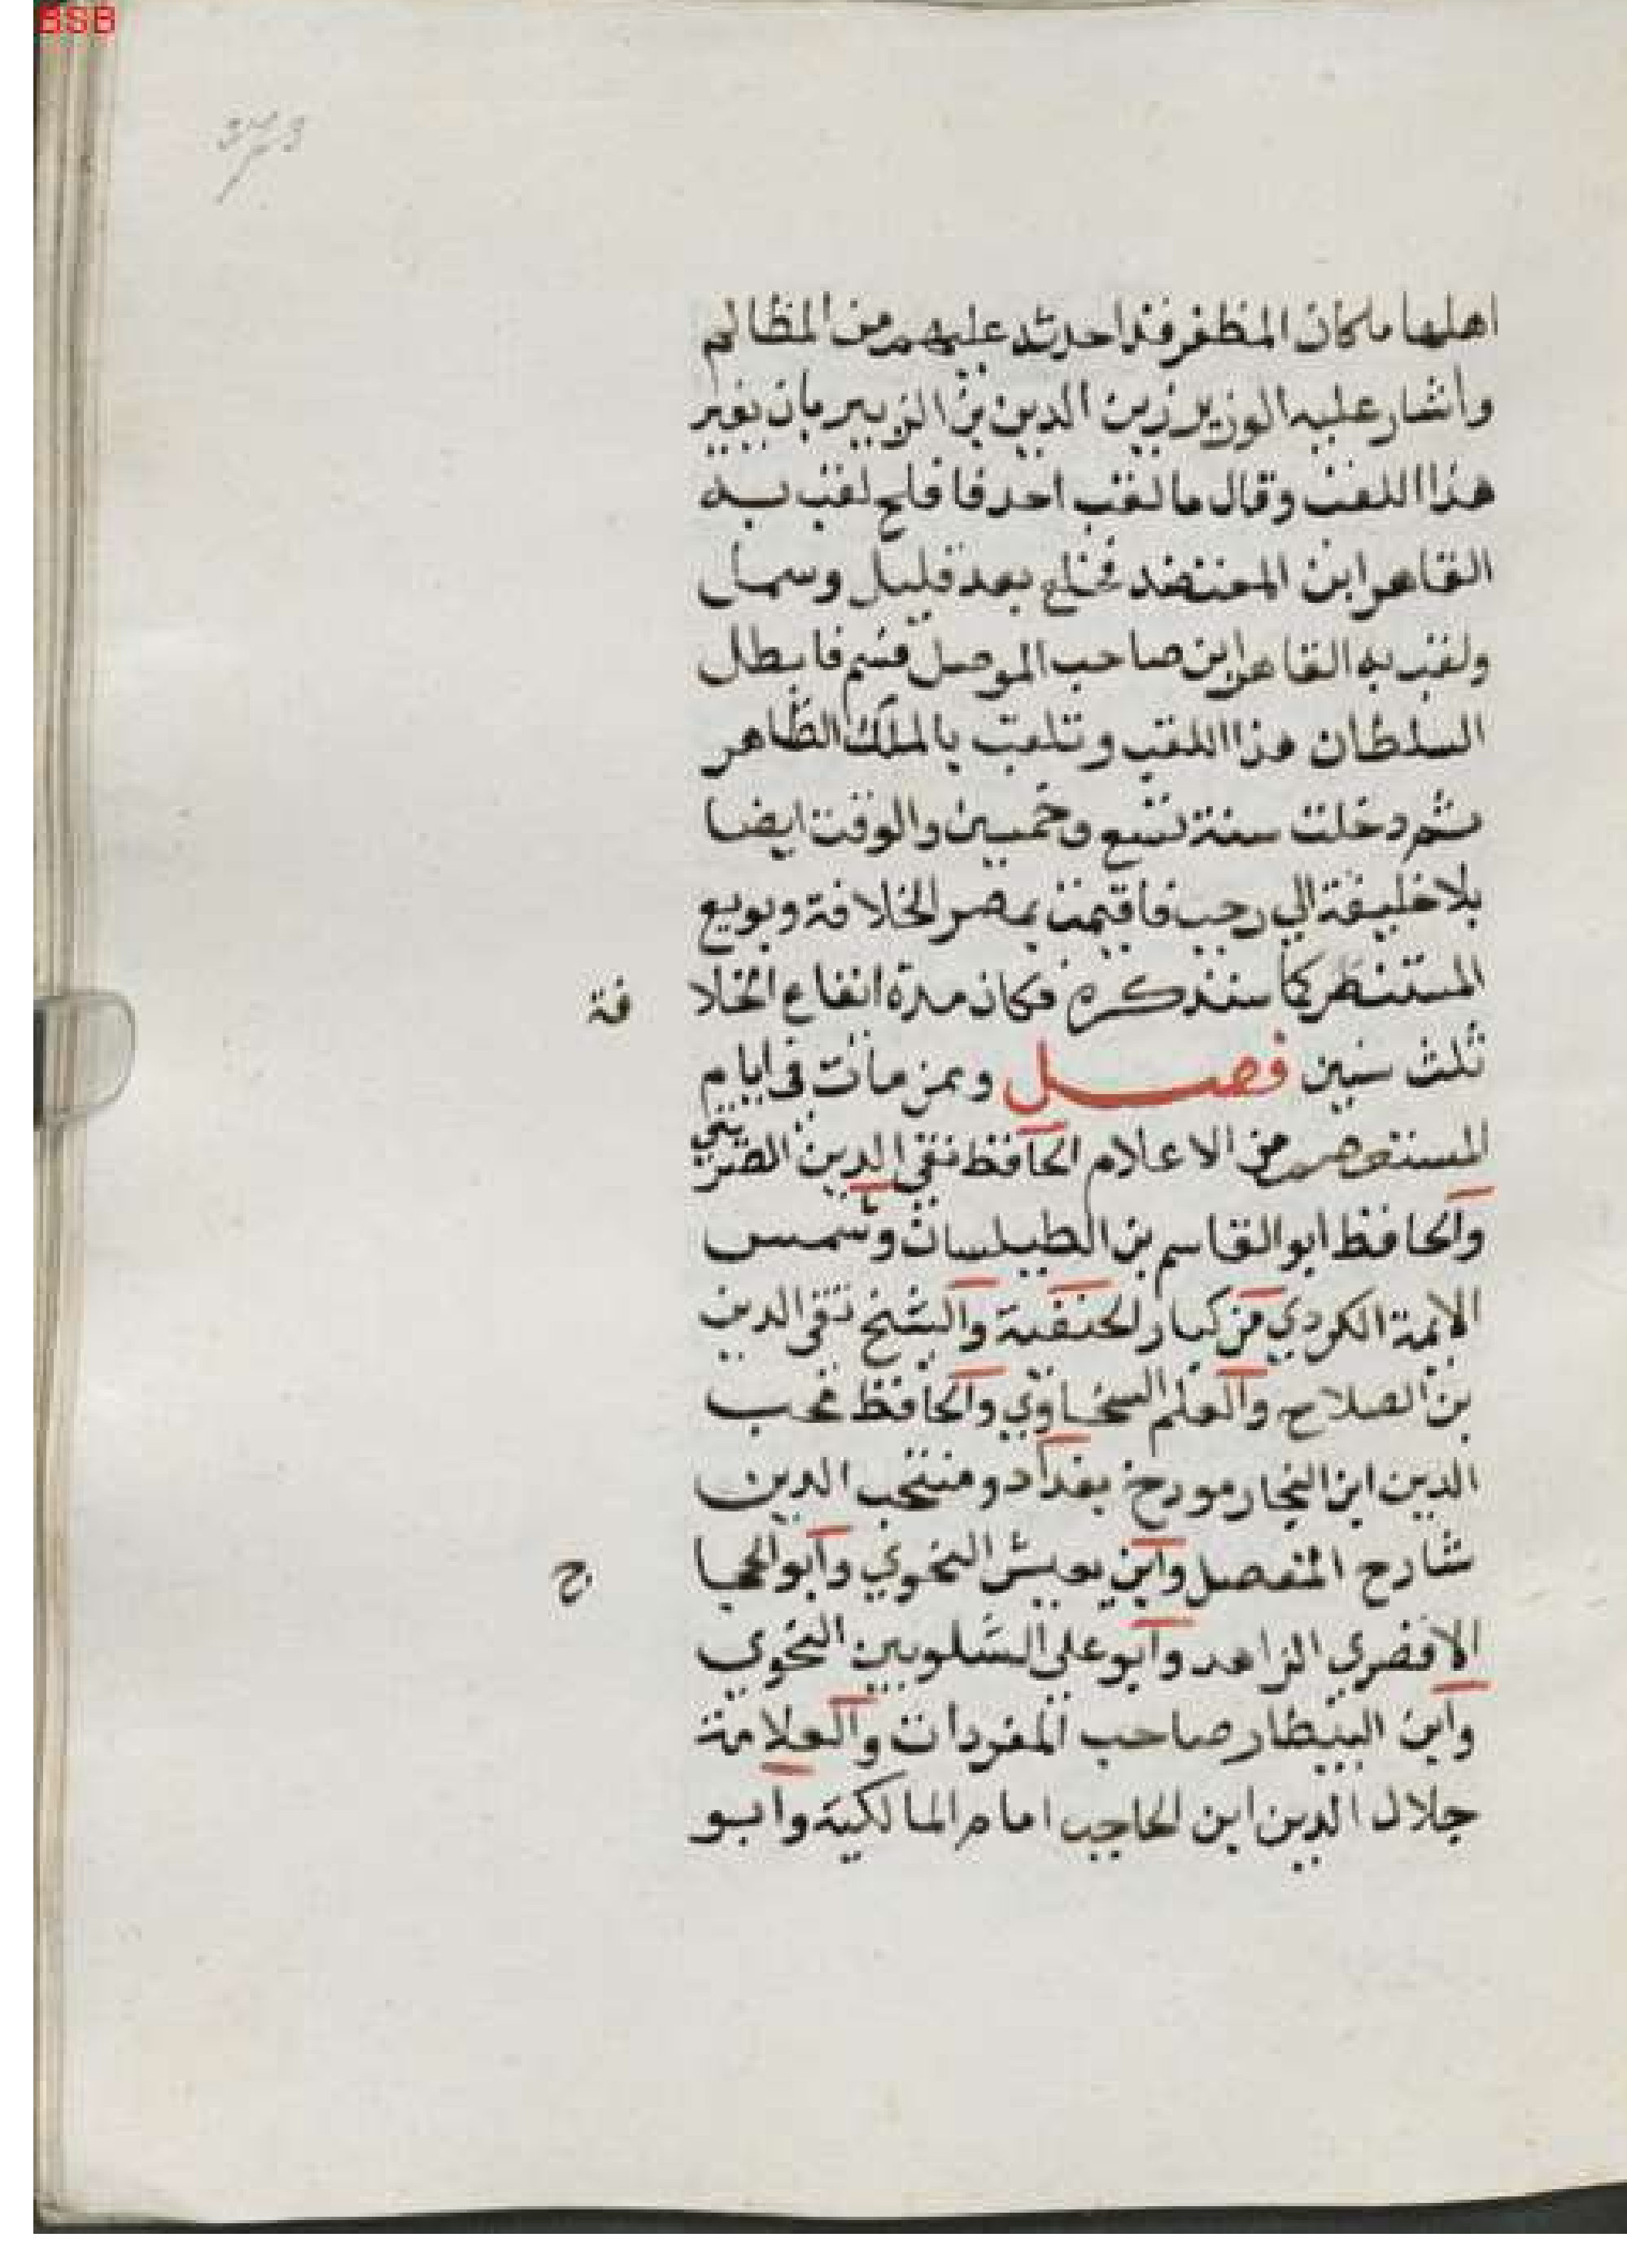 BSB
٢٧٣
اهلها ماكان المظفر قد احدثه عليهم من المظالم
واشار عليه الوزير زين الدين بن الزبير بان يغير
هذا اللقب وقال ما لقب احد فافلح لقب به
القاهر ابن المعتضد فخلع بعد قليل وسمل
ولقب به القاهر ابن صاحب الموصل فسم فابطل
السلطان هذا اللقب وتلقب بالملك الظاهر
ثم دخلت سنة تسع وخمسين والوقت ايضا
بلا خليفة الي رجب فاقيمت بمصر الخلافة وبويع
المستنصر كما سنذكره فكان مدة انقطاع الخلافة
ثلث سنين فصل وممن مات في ايام
المستعصم من الاعلام الحافظ تقي الدين الصريفيني
والحافظ ابو القاسم بن الطيلسان وشمس
الايمة الكردي من كبار الحنفية والشيخ تقي الدين
بن الصلاح والعلم السخاوي والحافظ محب
الدين ابن النجار مورخ بغداد ومنتخب الدين
شارح المفصل وابن يعيش النحوي وابو الحجاج
الاقصري الزاهد وابو على الشلوبين النحوي
وابن البيطار صاحب المفردات والعلامة
جلال الدين ابن الحاجب امام المالكية وابو